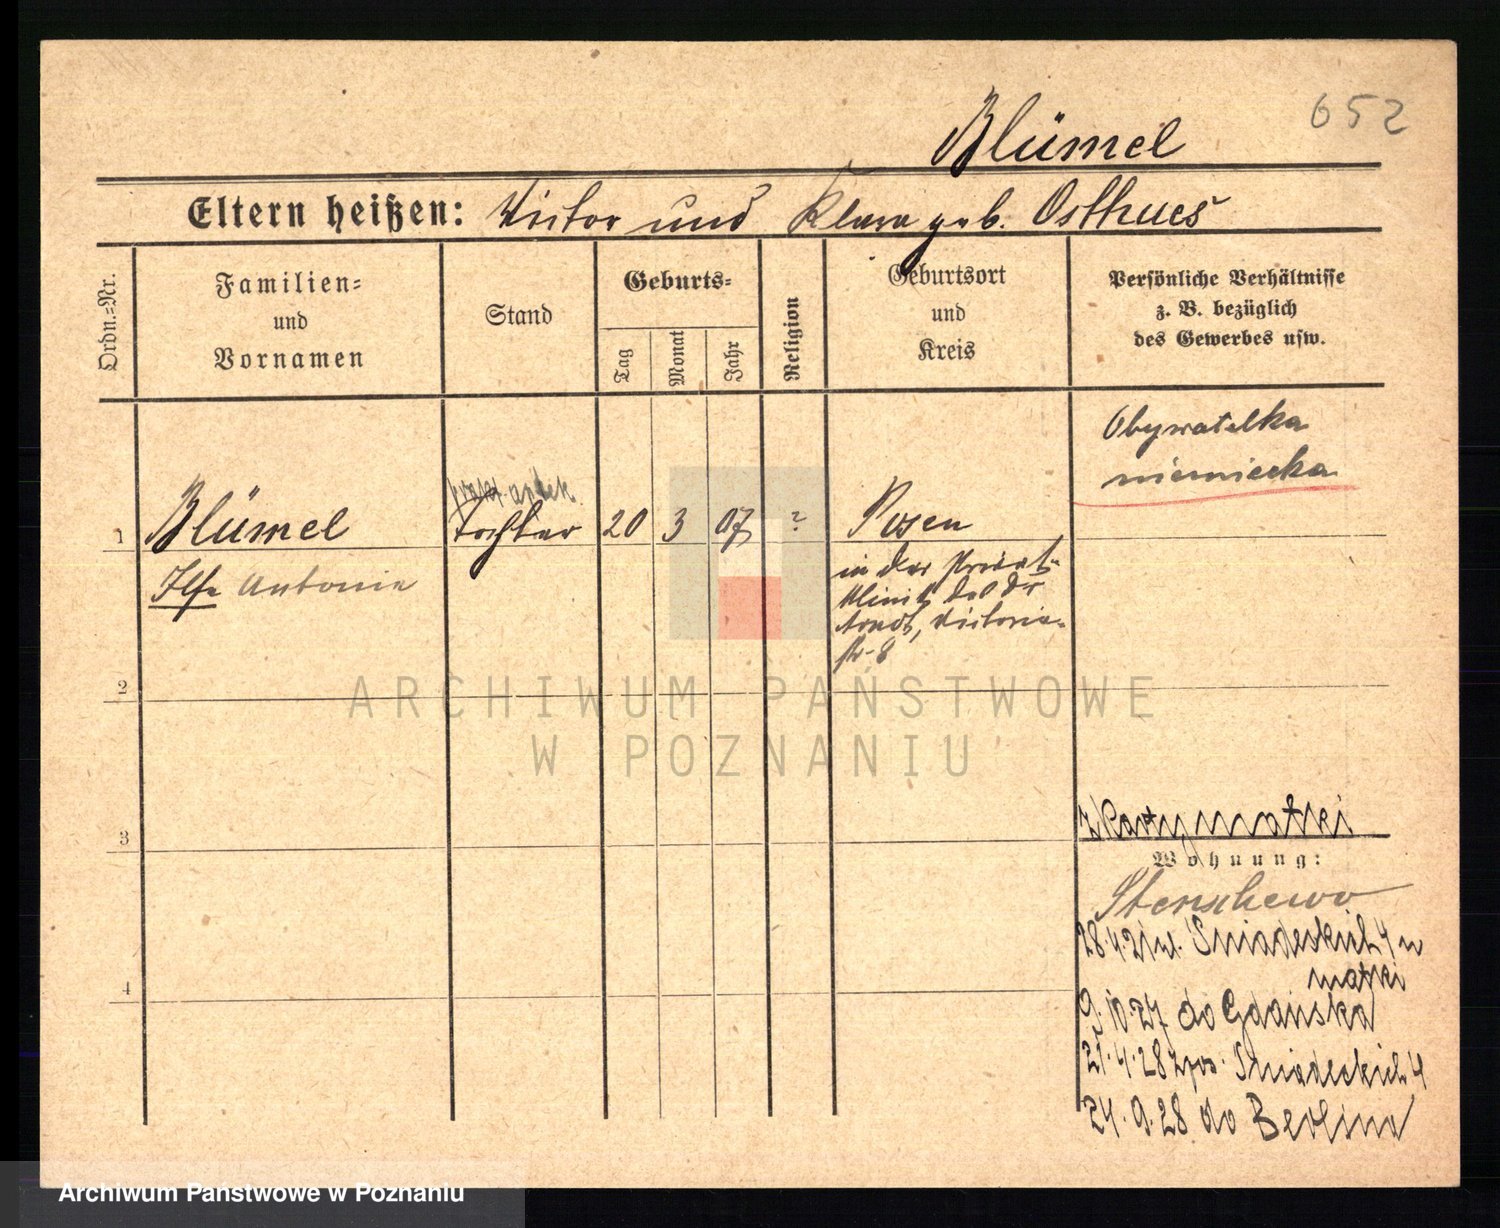 652
Blümel
Eltern heißen: Victor und Klara geb. Osthues
Ordn.-Nr.
Familien-
und
Vornamen
Stand
Geburts-
Tag
Monat
Jahr
Religion
Geburtsort
und
Kreis
Persönliche Verhältnisse
z. B. bezüglich
des Gewerbes usw.
Obywatelka
niemiecka
1
Blümel
Ilse Antonie
Tochter
20
3
07
?
Posen
in der Privat-
klinik des Dr
Arndt, Victoria-
str. 8
2
ARCHIWUM PAŃSTWOWE
W POZNANIU
3
z karty matki
Wohnung:
Stenschewo
28.4.21 ul. Śniadeckich 4 u
matki
4
9.10.27 do Gdańska
21.4.28 zpow. Śniadeckich 4
24.9.28 do Berlina
Archiwum Państwowe w Poznaniu